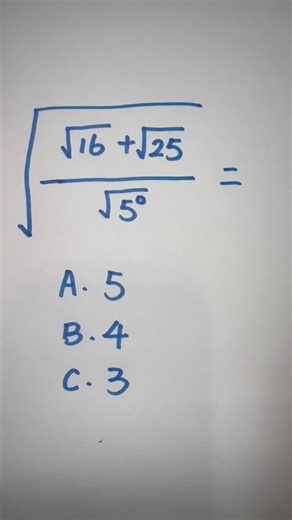 √(√16 + √25 / √5⁰) =
A. 5
B. 4
C. 3